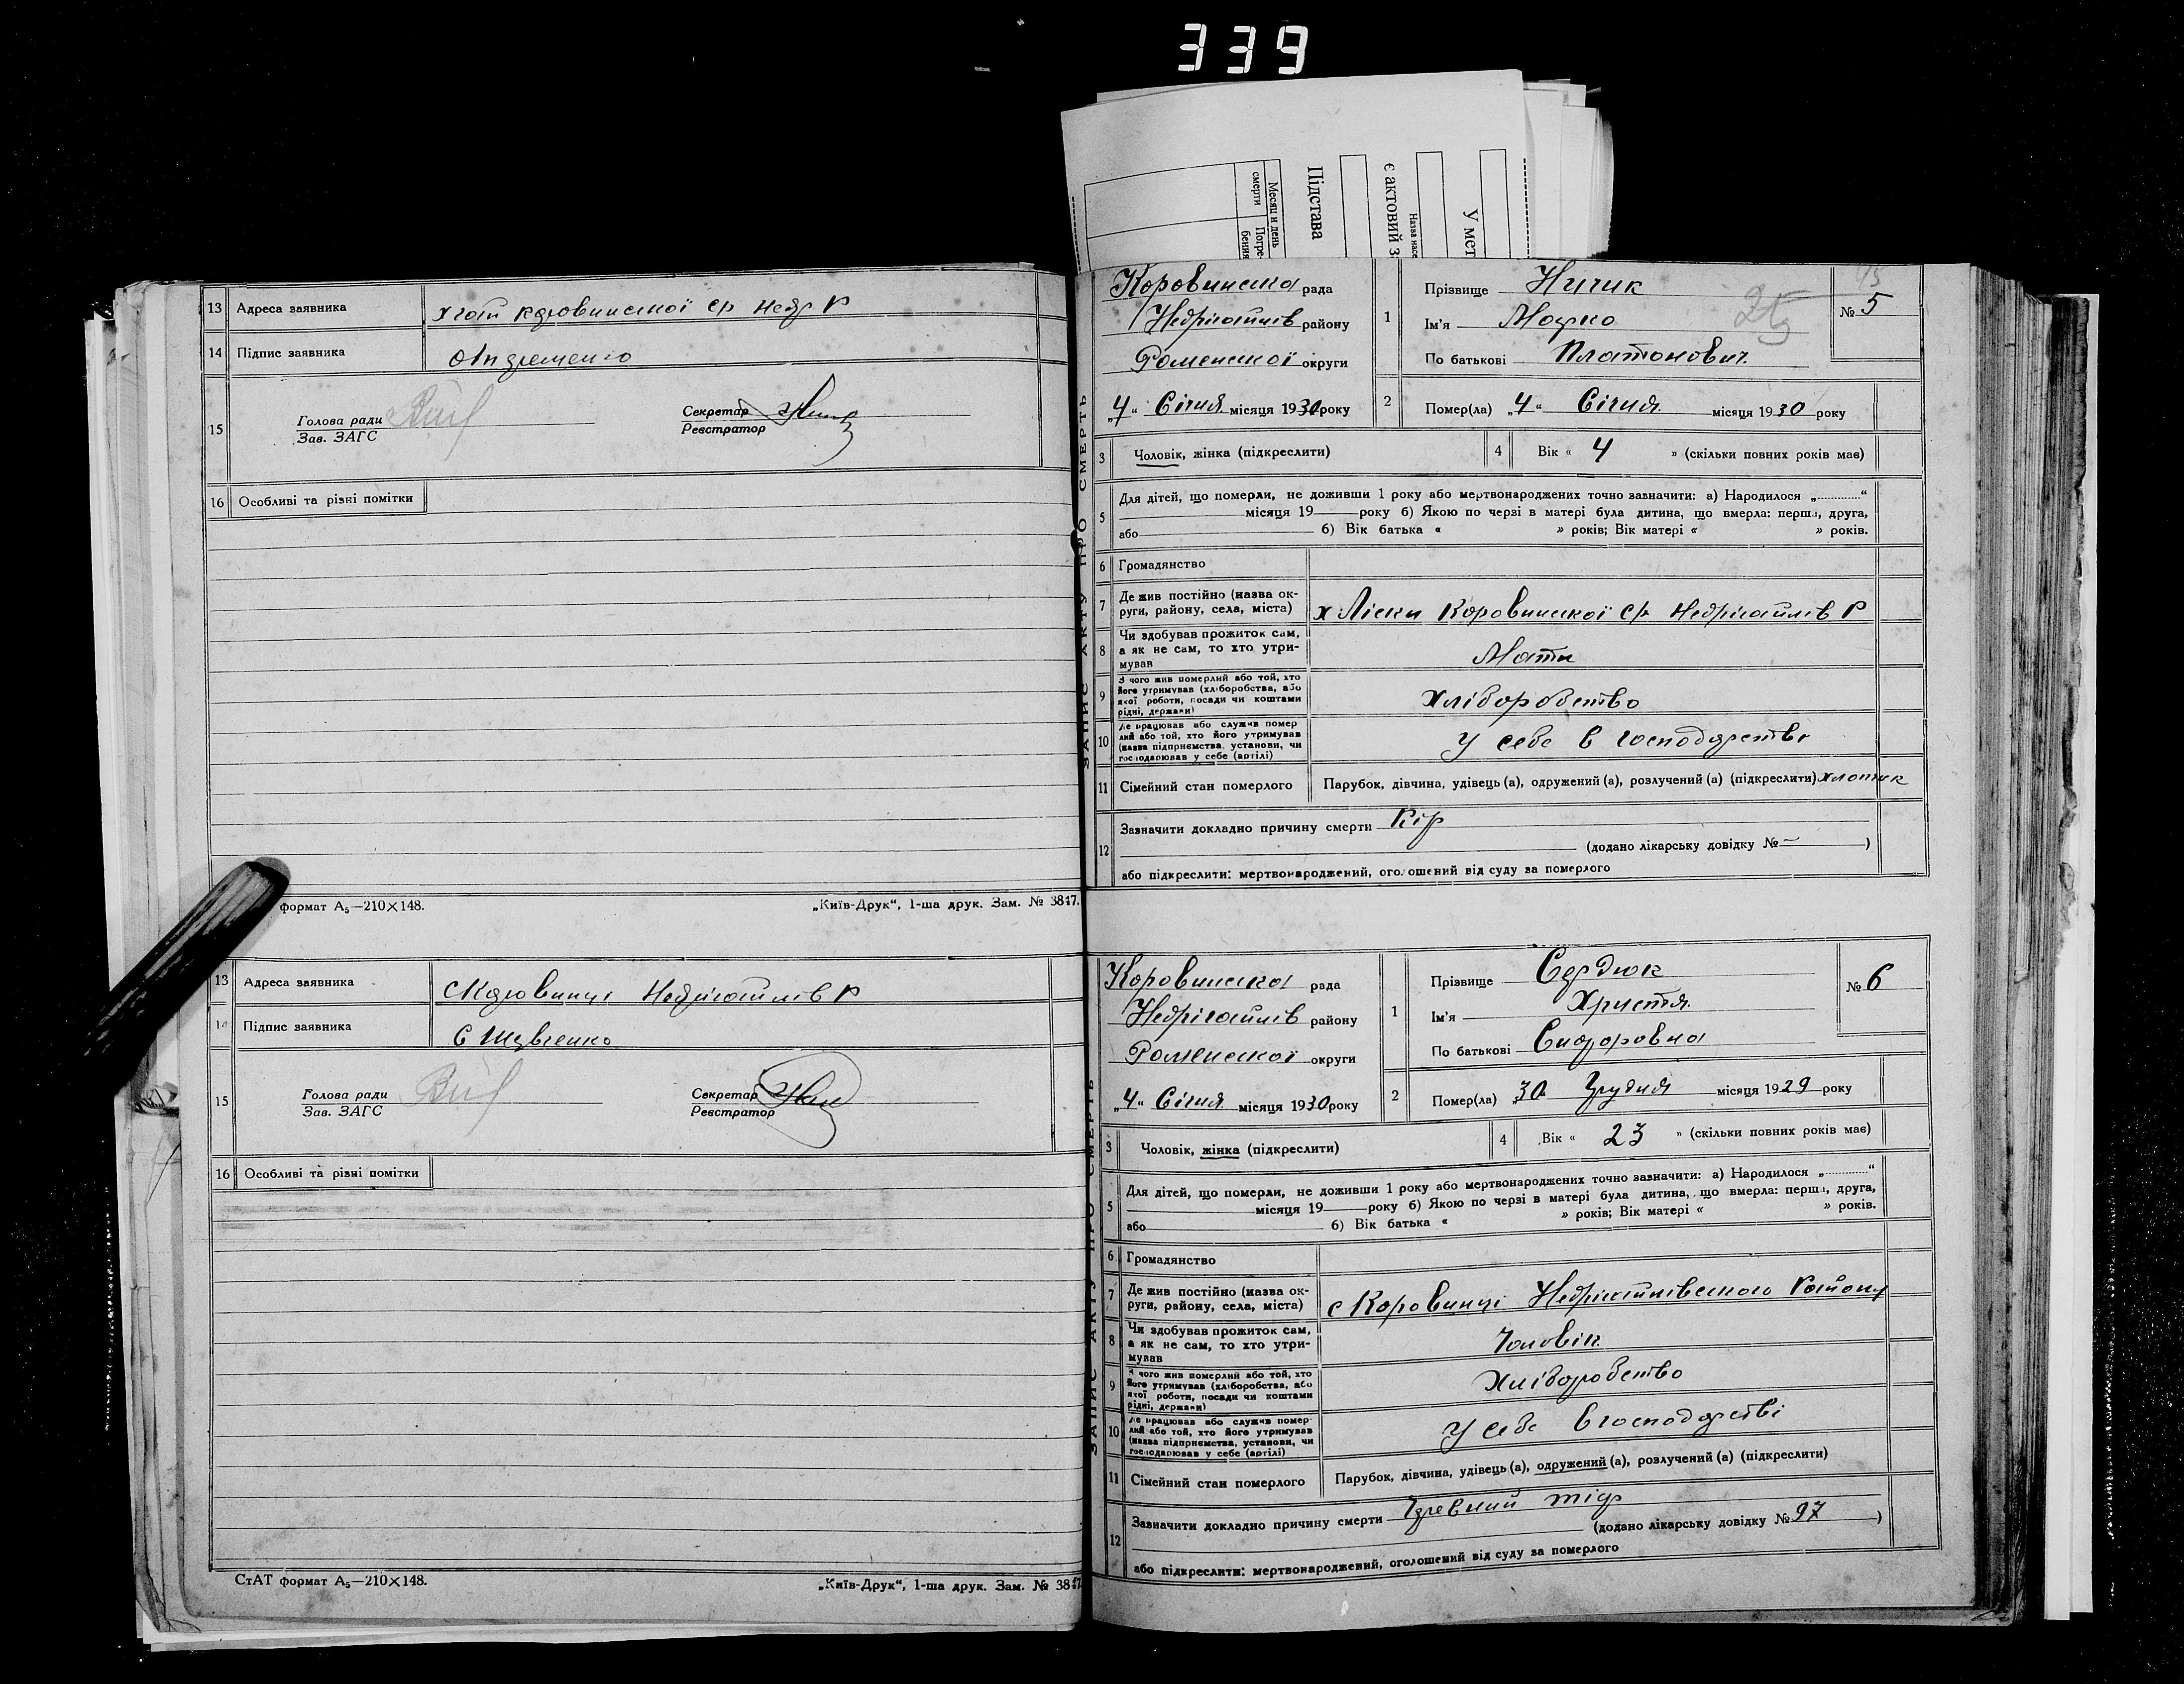 339
Месяц и день
смерти
Погре-
бения
Підстава
є актовий з
Назва насе
У мет
13 Адреса заявника
х Гаї Коровинської с/р Недр Р
14 Підпис заявника
15 Голова ради
Зав. ЗАГС
Секретар
Реєстратор
16 Особливі та різні помітки
формат А5—210×148.
„Київ-Друк“, 1-ша друк. Зам. № 3847.
13 Адреса заявника
с Коровинці Недригайлів Р
14 Підпис заявника
С Шевченко
15 Голова ради
Зав. ЗАГС
Секретар
Реєстратор
16 Особливі та різні помітки
СтАТ формат А5—210×148.
„Київ-Друк“, 1-ша друк. Зам. № 3847
ЗАПИС АКТУ ПРО СМЕРТЬ
Коровинська рада
Недригайлів району
Роменської округи
„4“ Січня місяця 1930 року
1 Прізвище Ничик
Ім'я Марко
По батькові Платонович
№ 5
2 Помер(ла) „4“ Січня місяця 1930 року
3 Чоловік, жінка (підкреслити)
4 Вік « 4 » (скільки повних років має)
5 Для дітей, що померли, не доживши 1 року або мертвонароджених точно зазначити: а) Народилося „............“
місяця 19 року б) Якою по черзі в матері була дитина, що вмерла: перша, друга,
або б) Вік батька « » років; Вік матері « » років.
6 Громадянство
7 Де жив постійно (назва ок-
руги, району, села, міста)
х Ліски Коровинської с/р Недригайлів Р
8 Чи здобував прожиток сам,
а як не сам, то хто утри-
мував
Мати
9 З чого жив померлий або той, хто
його утримував (хліборобства, або
якої роботи, посади чи коштами
рідні, держави)
Хліборобство
10 Де працював або служив помер
лий або той, хто його утримував
(назва підприємства, установи, чи
господарював у себе (артілі)
У себе в господарстві
11 Сімейний стан померлого
Парубок, дівчина, удівець (а), одружений (а), розлучений (а) (підкреслити) хлопчик
12 Зазначити докладно причину смерти Кір
(додано лікарську довідку № — )
або підкреслити: мертвонароджений, оголошений від суду за померлого
ЗАПИС АКТУ ПРО СМЕРТЬ
Коровинська рада
Недригайлів району
Роменської округи
„4“ Січня місяця 1930 року
1 Прізвище Сердюк
Ім'я Христя
По батькові Сидоровна
№ 6
2 Помер(ла) „30 Грудня місяця 1929 року
3 Чоловік, жінка (підкреслити)
4 Вік « 23 » (скільки повних років має)
5 Для дітей, що померли, не доживши 1 року або мертвонароджених точно зазначити: а) Народилося „............“
місяця 19 року б) Якою по черзі в матері була дитина, що вмерла: перша, друга,
або б) Вік батька « » років; Вік матері « » років.
6 Громадянство
7 Де жив постійно (назва ок-
руги, району, села, міста)
с Коровинці Недригайлівського Району
8 Чи здобував прожиток сам,
а як не сам, то хто утри-
мував
Чоловік
9 З чого жив померлий або той, хто
його утримував (хліборобства, або
якої роботи, посади чи коштами
рідні, держави)
Хліборобство
10 Де працював або служив помер-
лий або той, хто його утримував
(назва підприємства, установи, чи
господарював у себе (артілі)
У себе в господарстві
11 Сімейний стан померлого
Парубок, дівчина, удівець (а), одружений (а), розлучений (а) (підкреслити)
12 Зазначити докладно причину смерти Чревний тіф
(додано лікарську довідку № 97 )
або підкреслити: мертвонароджений, оголошений від суду за померлого